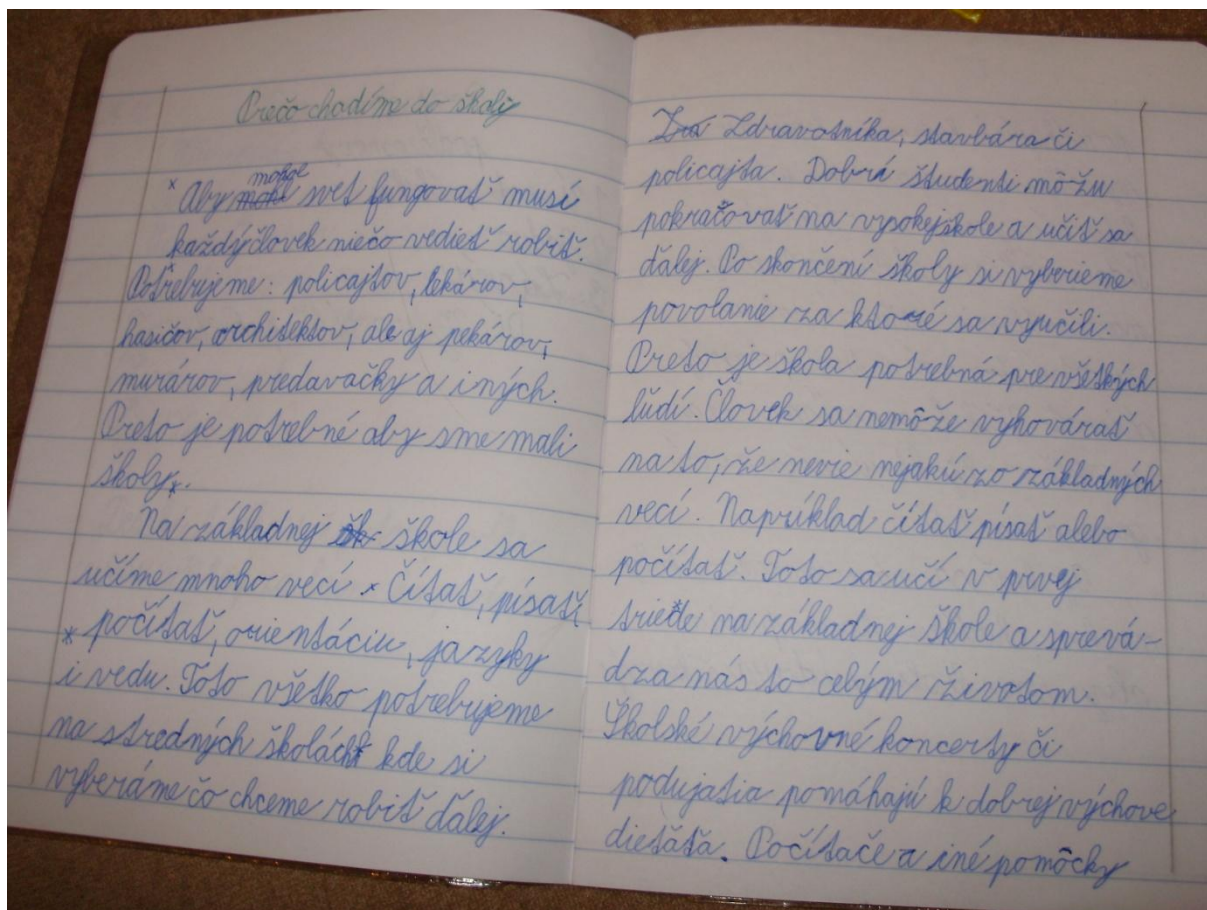 Prečo chodíme do školy
mohol
Aby svet fungovať musí
každý človek niečo vedieť robiť.
Potrebujeme: policajtov, lekárov,
hasičov, architektov, ale aj pekárov,
murárov, predavačky a iných.
Preto je potrebné aby sme mali
školy.
Na základnej šk škole sa
učíme mnoho vecí. Čítať, písať,
počítať, orientáciu, jazyky
i vedu. Toto všetko potrebujeme
na stredných školách kde si
vyberáme čo chceme robiť ďalej.
Zdravotníka, stavbára či
policajta. Dobrí študenti môžu
pokračovať na vysokej škole a učiť sa
ďalej. Po skončení školy si vyberieme
povolanie za ktoré sa vyučili.
Preto je škola potrebná pre všetkých
ľudí. Človek sa nemôže vyhovárať
na to, že nevie nejakú zo základných
vecí. Napríklad čítať písať alebo
počítať. Toto sa učí v prvej
triede na základnej škole a sprevá-
dza nás to celým životom.
Školské výchovné koncerty či
podujatia pomáhajú k dobrej výchove
dieťaťa. Počítače a iné pomôcky